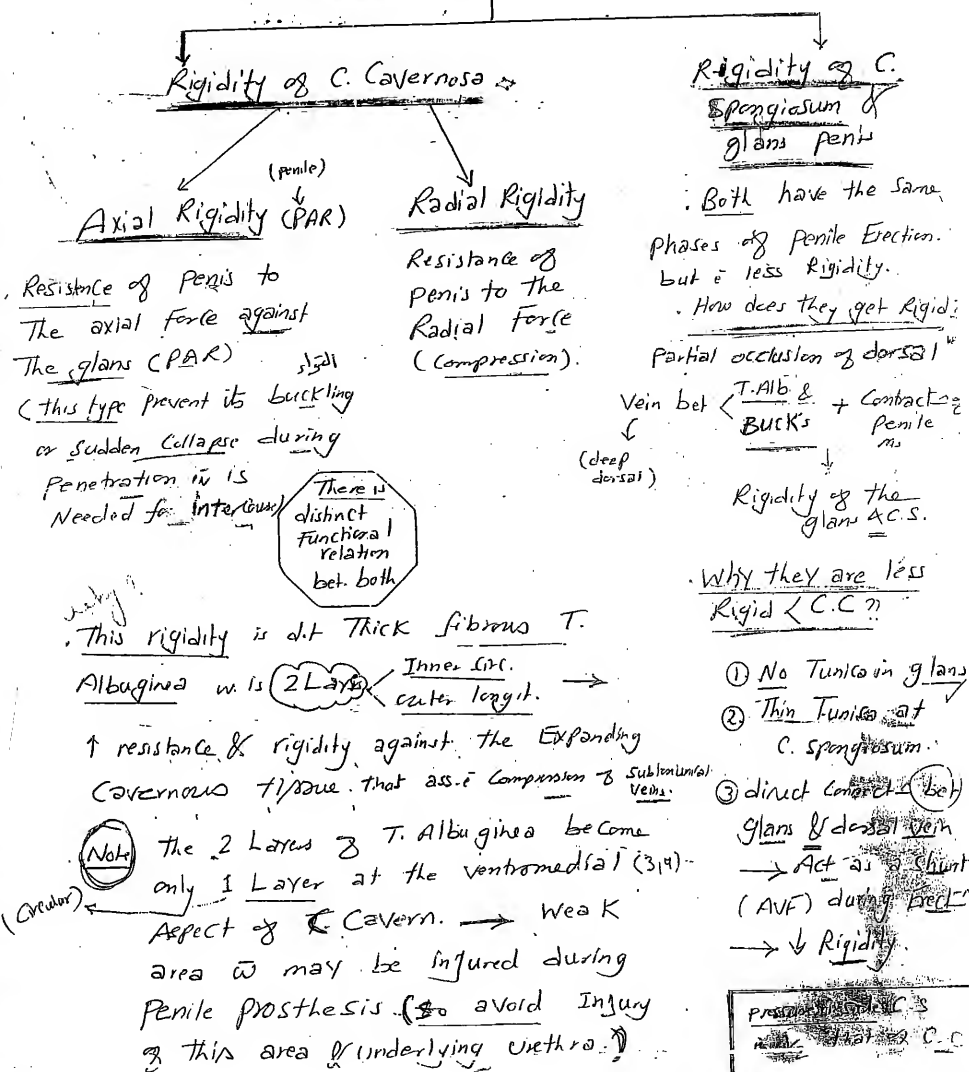 Rigidity of C. Cavernosa
(penile)
Axial Rigidity (PAR)
. Resistence of Penis to
The axial Force against
The glans (PAR)
التواء
(this type prevent its buckling
or Sudden Collapse during
Penetration is
Needed for Intercourse)
Radial Rigidity
Resistance of
penis to the
Radial Force
(Compression).
There is
distinct
Functional
relation
bet. both
why?
. This rigidity is d.t Thick fibrous T.
Albuginea w. is 2 Layers
Inner circ.
outer longit. →
↑ resistance & rigidity against the Expanding
Cavernous tissue that ass. c̄ Compression of Subtunical
Veins.
Note
the 2 Layers of T. Albuginea become
only 1 Layer at the ventromedial
(Circular)
Aspect of C. Cavern. → Weak
area w̄ may be injured during
Penile prosthesis (so avoid Injury
of this area & underlying urethra)
Rigidity of C.
Spongiosum &
glans penis
. Both have the Same
Phases of Penile Erection.
but c̄ less Rigidity.
. How does they get Rigid:
Partial occlusion of dorsal
Vein bet < T.Alb. & Buck's + Contract of Penile ms
(deep dorsal)
↓
Rigidity of the
glans & C.S.
. Why they are less
Rigid < C.C ??
① No Tunica in glans
② Thin Tunica at
C. spongiosum.
③ direct connect bet
glans & dorsal vein
→ Act as a Shunt
(AVF) during Erect
→ ↓ Rigidity.
C.S
that of C.C